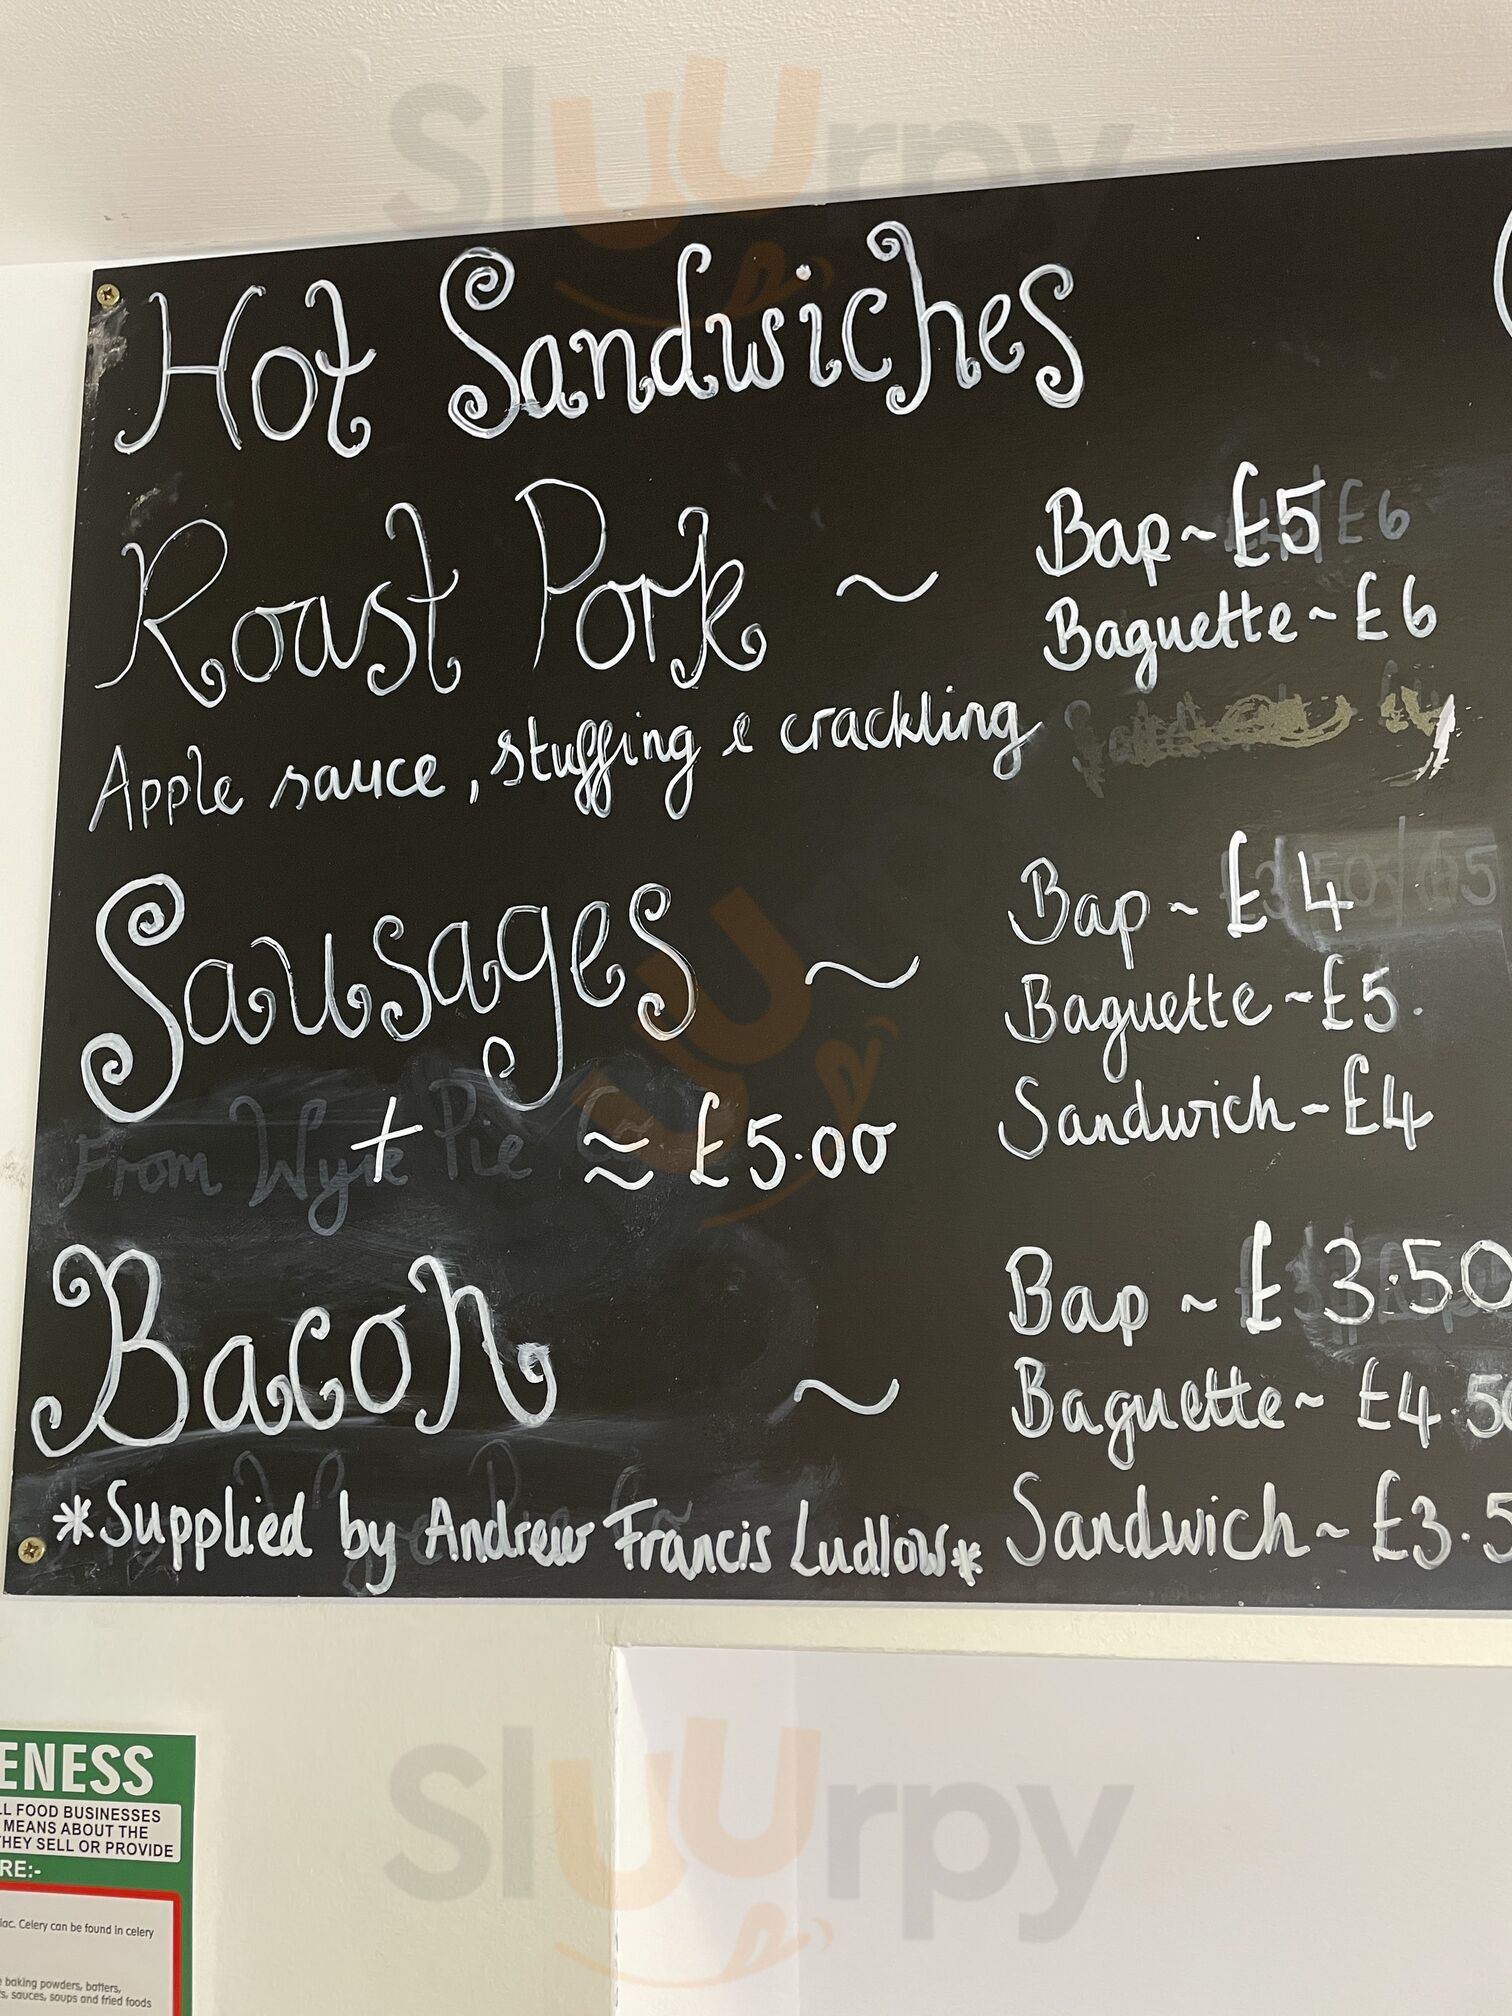 Sluurpy
Hot Sandwiches
Roast Pork ~
Bap ~ £5
Baguette ~ £6
Apple sauce, stuffing & crackling
Sausages ~
Bap ~ £4
Baguette ~ £5.
Sandwich ~ £4
From Wyre Pie
+ ≈ £5.00
Bacon ~
Bap ~ £3.50
Baguette ~ £4.50
Sandwich ~ £3.5
*Supplied by Andrew Francis Ludlow*
ENESS
LL FOOD BUSINESSES
MEANS ABOUT THE
THEY SELL OR PROVIDE
RE:-
iac. Celery can be found in celery
baking powders, batters,
s, sauces, soups and fried foods
Sluurpy